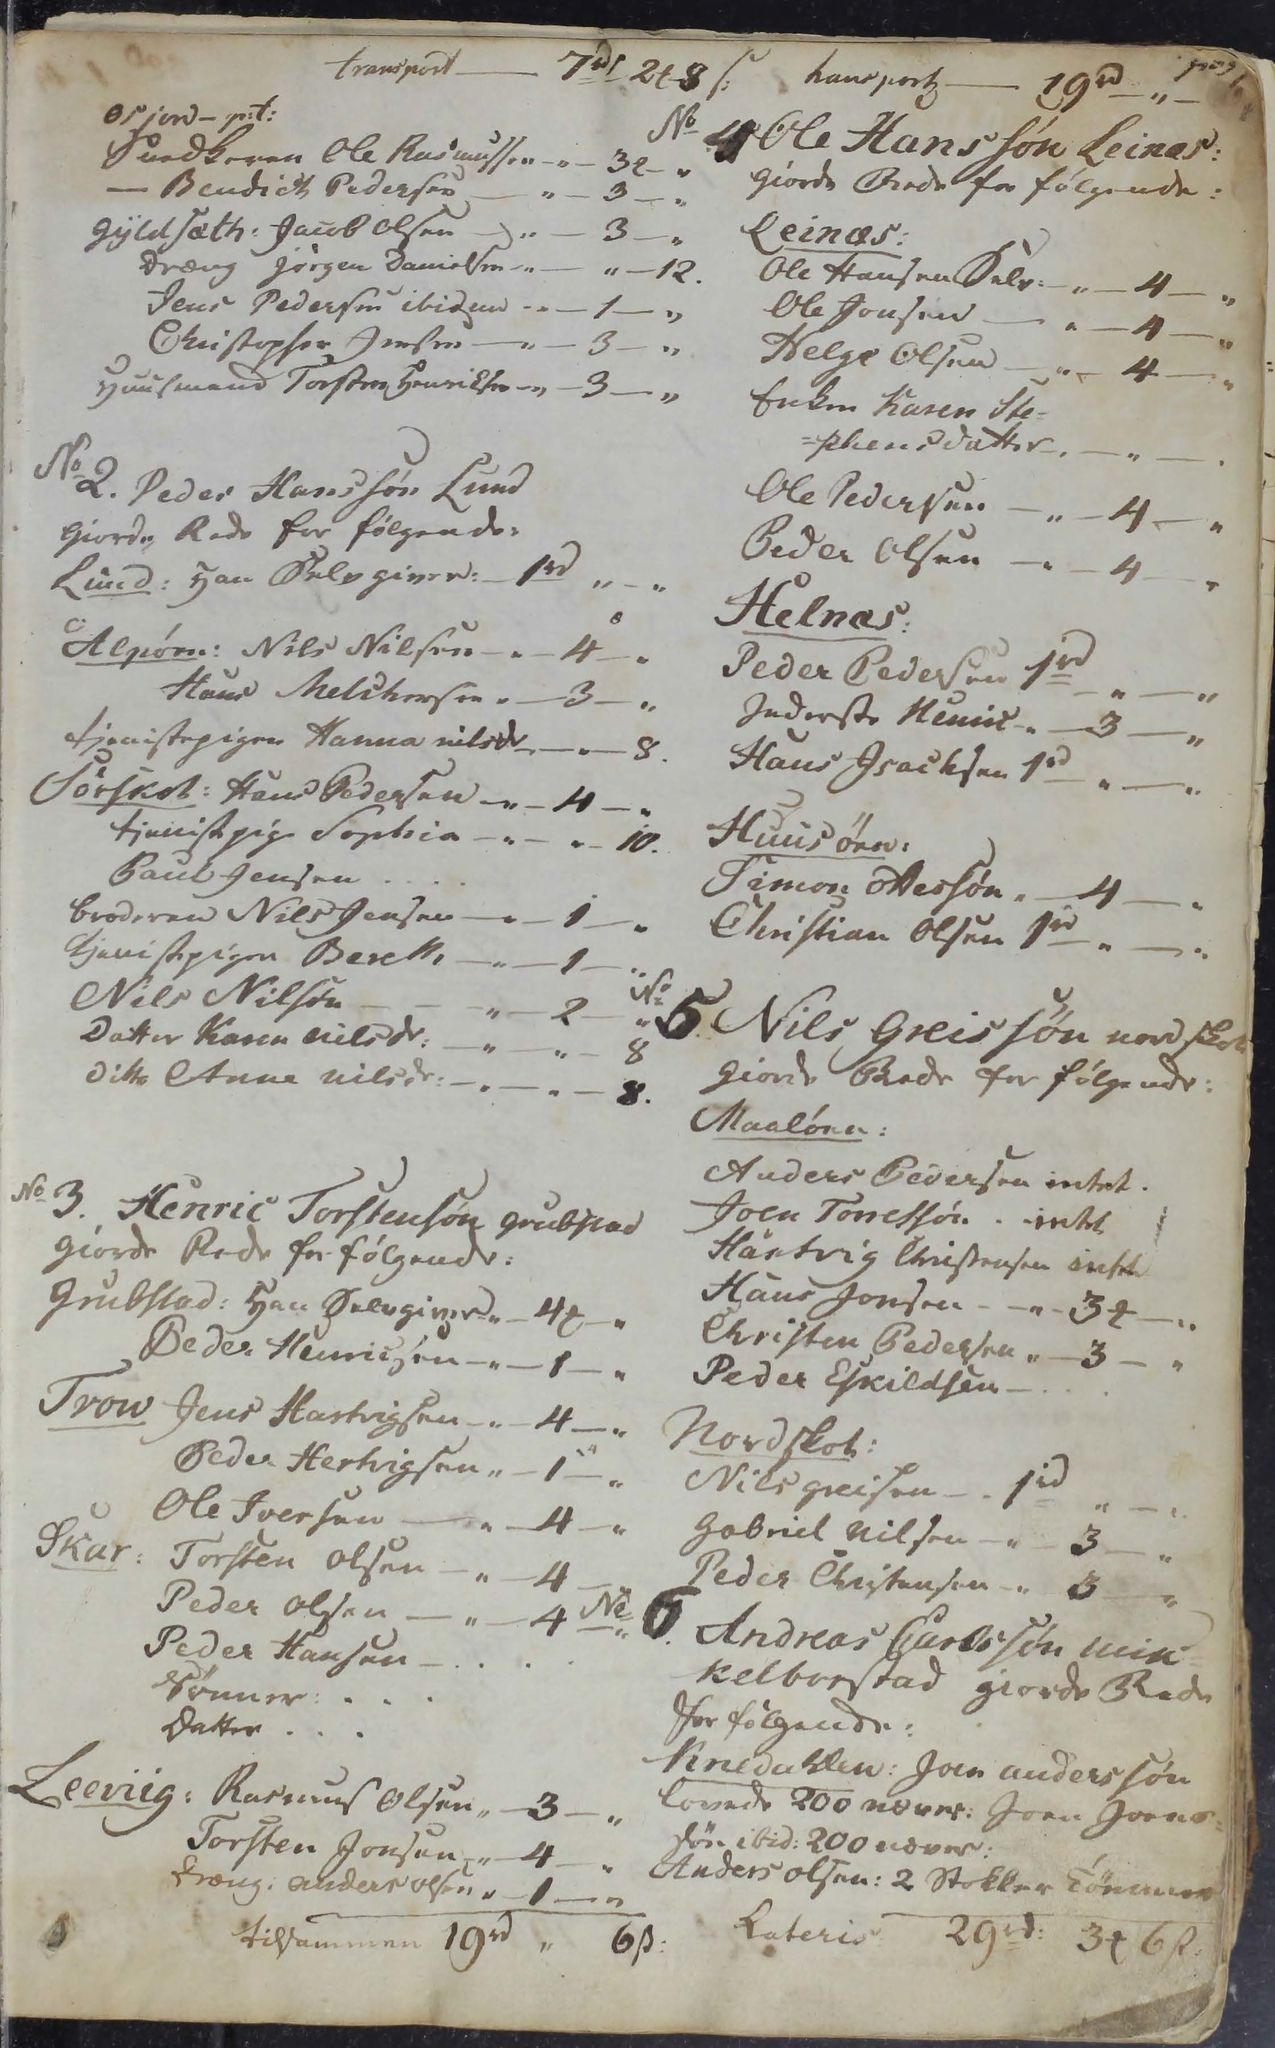 transport — 7rd 2 ȶ 8 ß:
Osjord - pt:
Ole Rasmussen - „ - 3 ȶ - „
— Bendict Pedersen - „ - 3 - „
Gyldsæth: Jacob Olsen - „ - 3 - „
dræng Jørgen Danielsen - „ - „ - 12.
Jens Pedersen ibidem - „ - 1 - „
Christopher Jensen - „ - 3 - „
Huusmand Torsten Henrichsen - „ - 3 - „
No 2. Peder Hanssøn Lund
giorde Rede for følgende:
Lund: Han Selv giver: - 1rd „ - „
Alpøen: Nils Nilsen - „ - 4 - „
Hans Melchersen „ - 3 - „
tjenistepigen Hanna nilsdr - „ - „ - 8.
Sørskot: Hans Pedersen - „ - 4 - „
tjenistpige Sophia - „ - „ - 10.
Paul Jensen . . . .
broderen Nils Jensen - „ - 1 - „
tjenistpigen Bereth - „ - 1 - „
Nils Nilsøn - „ - 2 - „
Datter Karen nilsdr: - „ - „ - 8
ditto Anne nilsdr: - „ - „ - 8.
No 3. Henric Torstensøn Grubstad
giorde Rede for følgende:
Grubstad: Han Selv giver „ - 4 ȶ - „
Peder Henricsen - „ - 1 - „
Trow Jens Hartvigsen - „ - 4 - „
Peder Hertvigsen „ - 1 - „
Ole Iversen - „ - 4 - „
Skar: Torsten Olsen - „ - 4 - „
Peder Olsen - „ - 4 - „
Peder Hansen - . . . .
Sønner: . . .
Datter . . .
Leeviig: Rasmus Olsen „ - 3 - „
Torsten Jonsen - „ - 4 - „
dræng: anders olsen „ - 1 - „
tilsammen 19rd „ 6 ß:
transport — 19rd - „ -
No 4 Ole Hanssøn Leinæs:
giorde Rede for følgende:
Leinæs:
Ole Hansen Selv: - „ - 4 - „
Ole Jonsen - „ - 4 - „
Helge Olsen - „ - 4 - „
Enken Karen Ste=
=phensdatter - . - „ - .
Ole Pedersen - „ - 4 - „
Peder Olsen - „ - 4 - „
Helnæs:
Peder Pedersen 1rd - „ - „
Inderste Henric - „ - 3 - „
Hans Isachsen 1rd - „ - „
Huusøen:
Simon Ottessøn „ - 4 - „
Christian Olsen 1rd - „ - „
No 5. Nils Greissøn nordskot
giorde Rede for følgende:
Maaløen:
Anders Pedersen intet.
Joen Torressøn . intet
Hartvig Christensen intet
Hans Jonsen - „ - 3 ȶ - „
Christen Pedersen „ - 3 - „
Peder Eskildsen - . . .
Nordskot:
Nils greisen - . 1rd „ - „
Gabriel Nilsen - „ - 3 - „
Peder Christensen - „ 3 - „
No 6. Andreas Carlssøn min=
kelborstad giorde Rede
for følgende:
Knedahlen: Joen anderssøn
lovede 200 næver: Joen Joens=
søn ibid: 200 næver:
Anders olsen: 2 Stokker Tømmer
Lateris 29rd: 3 ȶ 6 ß: